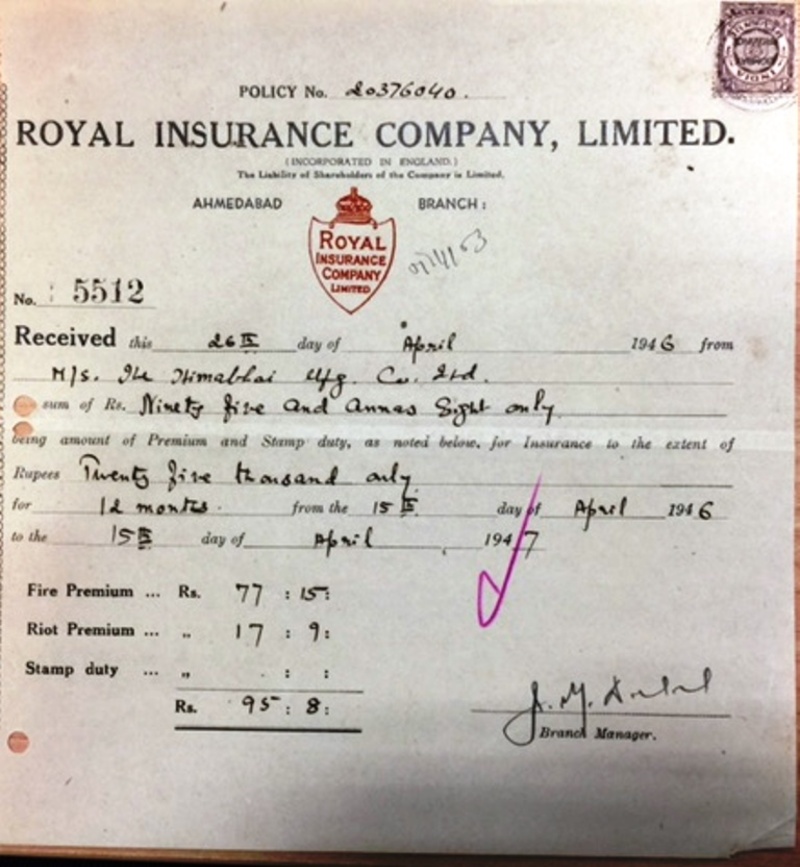 POLICY No. 20376040.
ROYAL INSURANCE COMPANY, LIMITED.
(INCORPORATED IN ENGLAND.)
The Liability of Shareholders of the Company is Limited.
AHMEDABAD BRANCH:
ROYAL
INSURANCE
COMPANY
LIMITED
No. 5512
Received this 26th day of April 1946 from
M/s. The Himabhai Mfg. Co. Ltd.
sum of Rs. Ninety five and annas Eight only
being amount of Premium and Stamp duty, as noted below, for Insurance to the extent of
Rupees Twenty five thousand only
for 12 months. from the 15th day of April 1946
to the 15th day of April, 1947
Fire Premium ... Rs. 77 : 15:
Riot Premium ... " 17 : 9:
Stamp duty ... " : :
Rs. 95 : 8:
Branch Manager.
INDIA